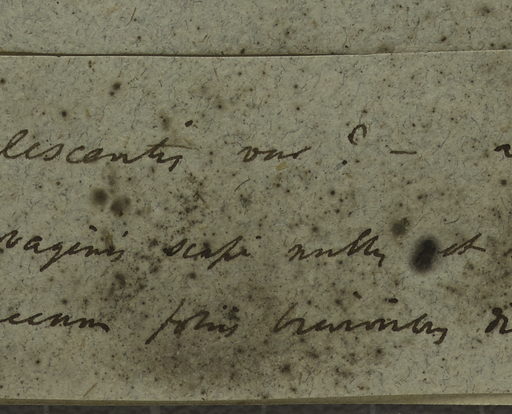 lescentis var ? –
vaginis scapi nullis et
foliis brevioribus